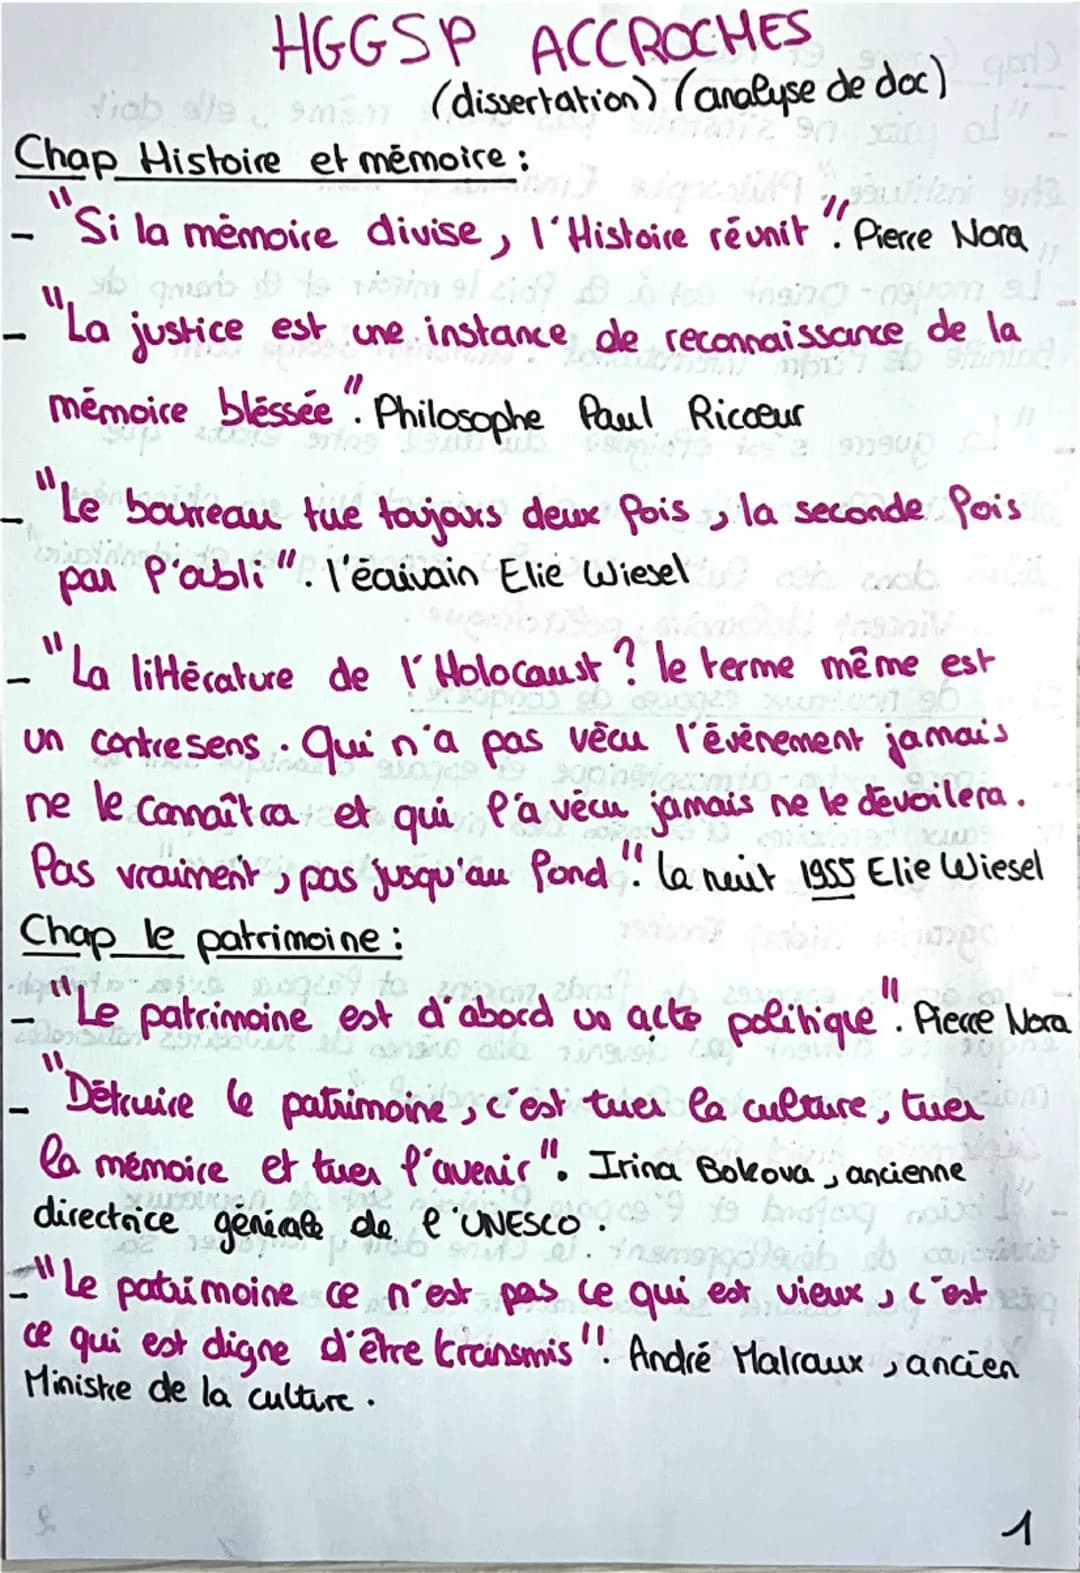 HGGSP ACCROCHES
(dissertation) (analyse de doc)
Chap Histoire et mémoire :
- "Si la mémoire divise, l'Histoire réunit". Pierre Nora
- "La justice est une instance de reconnaissance de la
mémoire bléssée". Philosophe Paul Ricœur
- "Le bourreau tue toujours deux fois, la seconde fois
par l'oubli". l'écrivain Elie Wiesel
- "La littérature de l'Holocaust ? le terme même est
un contresens. Qui n'a pas vécu l'événement jamais
ne le connaîtra et qui l'a vécu jamais ne le dévoilera.
Pas vraiment, pas jusqu'au fond". La nuit 1955 Elie Wiesel
Chap le patrimoine :
- "Le patrimoine est d'abord un acte politique". Pierre Nora
- "Détruire le patrimoine, c'est tuer la culture, tuer
la mémoire et tuer l'avenir". Irina Bokova, ancienne
directrice générale de l'UNESCO.
- "Le patrimoine ce n'est pas ce qui est vieux, c'est
ce qui est digne d'être transmis". André Malraux, ancien
Ministre de la culture.
1